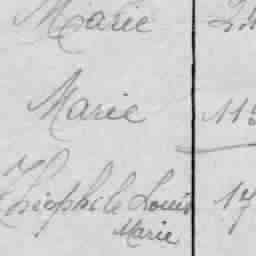 Marie
Marie 113
Théophile Louis 17
Marie